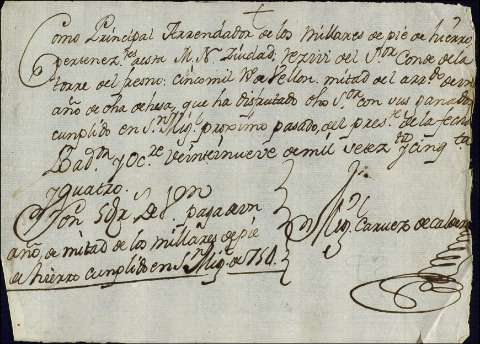 Como Principal Arrendador de los Millares de pie de hierro
pertenez.tes a esta M. N. Ziudad, rezivi del S.or Conde de la
torre del fresno: cinco mil R.s de vellon, mitad del arr.to de un
año de dha dehesa, que ha disfrutado dho S.or con sus ganados
cumplido en S.n Mig.l proximo pasado, del pres.te de la fecha
Bad.z y Oc.re veintinueve de mil setez.tos y cinq.ta
y quatro.
Son 5@ R.s de v.n pasa de un
año, de mitad de los millares de pie
de hierro cumplido en S.n Mig.l de 754.
Mig.l